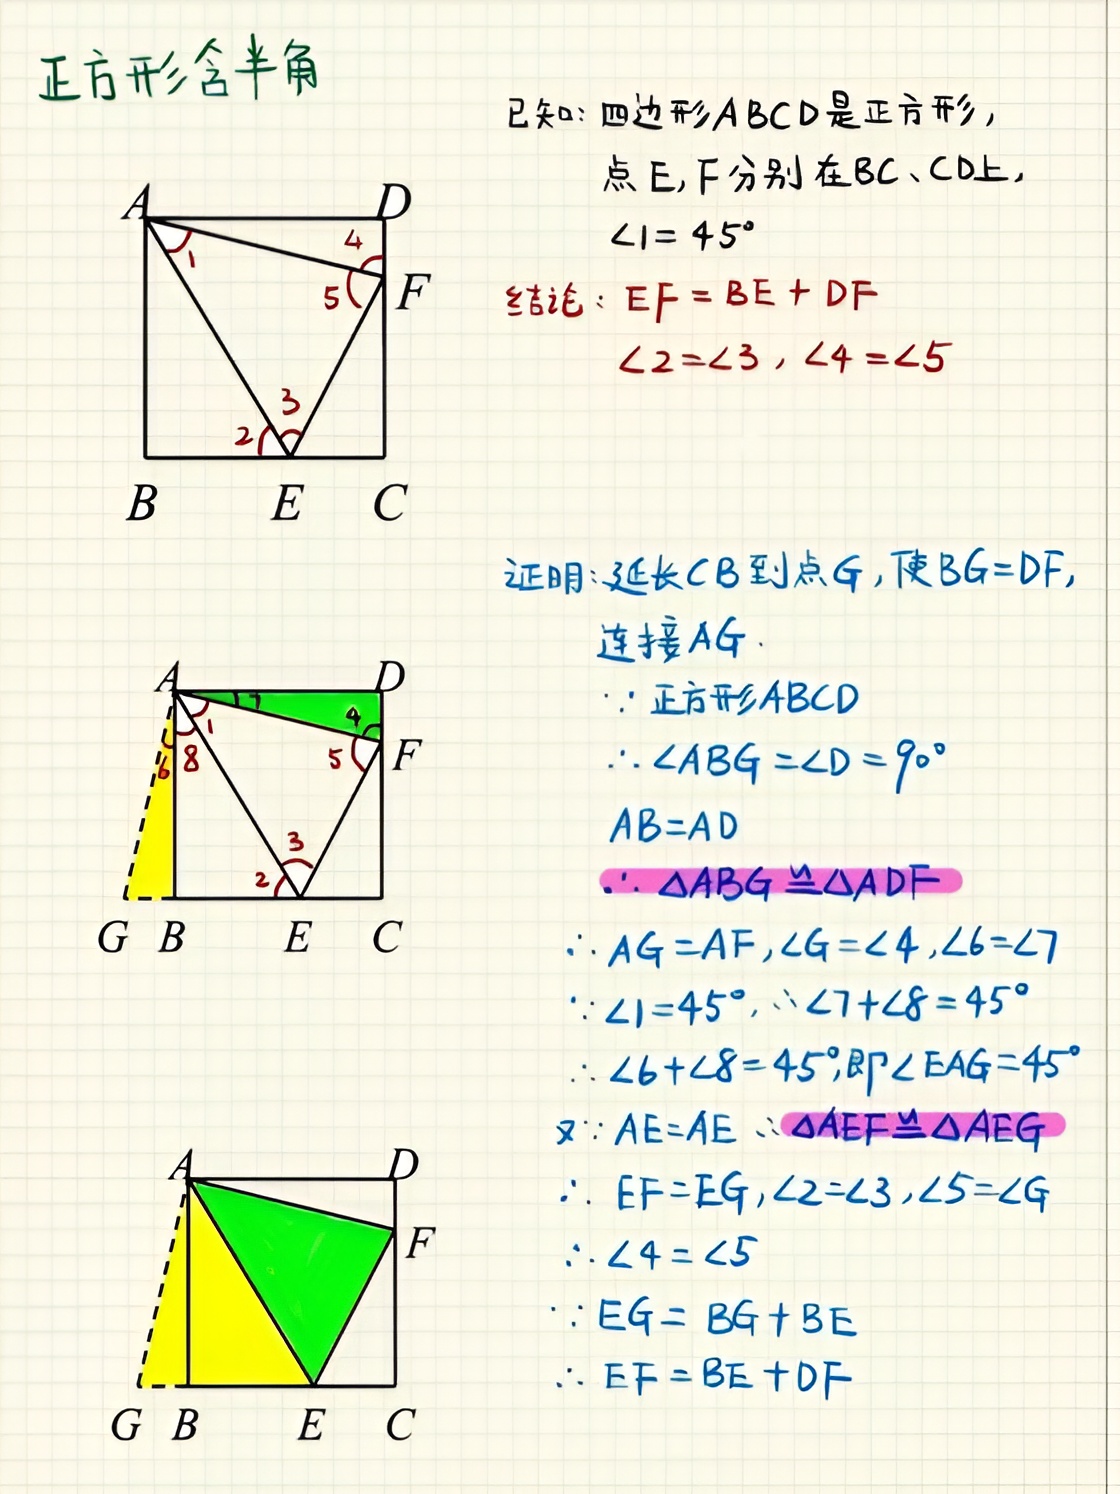 正方形含半角
已知:四边形ABCD是正方形,
点E,F分别在BC、CD上,
∠1=45°
结论:EF=BE+DF
∠2=∠3,∠4=∠5
A D
1 4
5 F
3
2
B E C
证明:延长CB到点G,使BG=DF,
连接AG.
∵正方形ABCD
∴∠ABG=∠D=90°
AB=AD
∴△ABG≌△ADF
∴AG=AF,∠G=∠4,∠6=∠7
∵∠1=45°,∴∠7+∠8=45°
∴∠6+∠8=45°,即∠EAG=45°
又∵AE=AE ∴△AEF≌△AEG
∴EF=EG,∠2=∠3,∠5=∠G
∴∠4=∠5
∵EG=BG+BE
∴EF=BE+DF
A D
7
1 4
6 8 5 F
3
2
G B E C
A D
F
G B E C